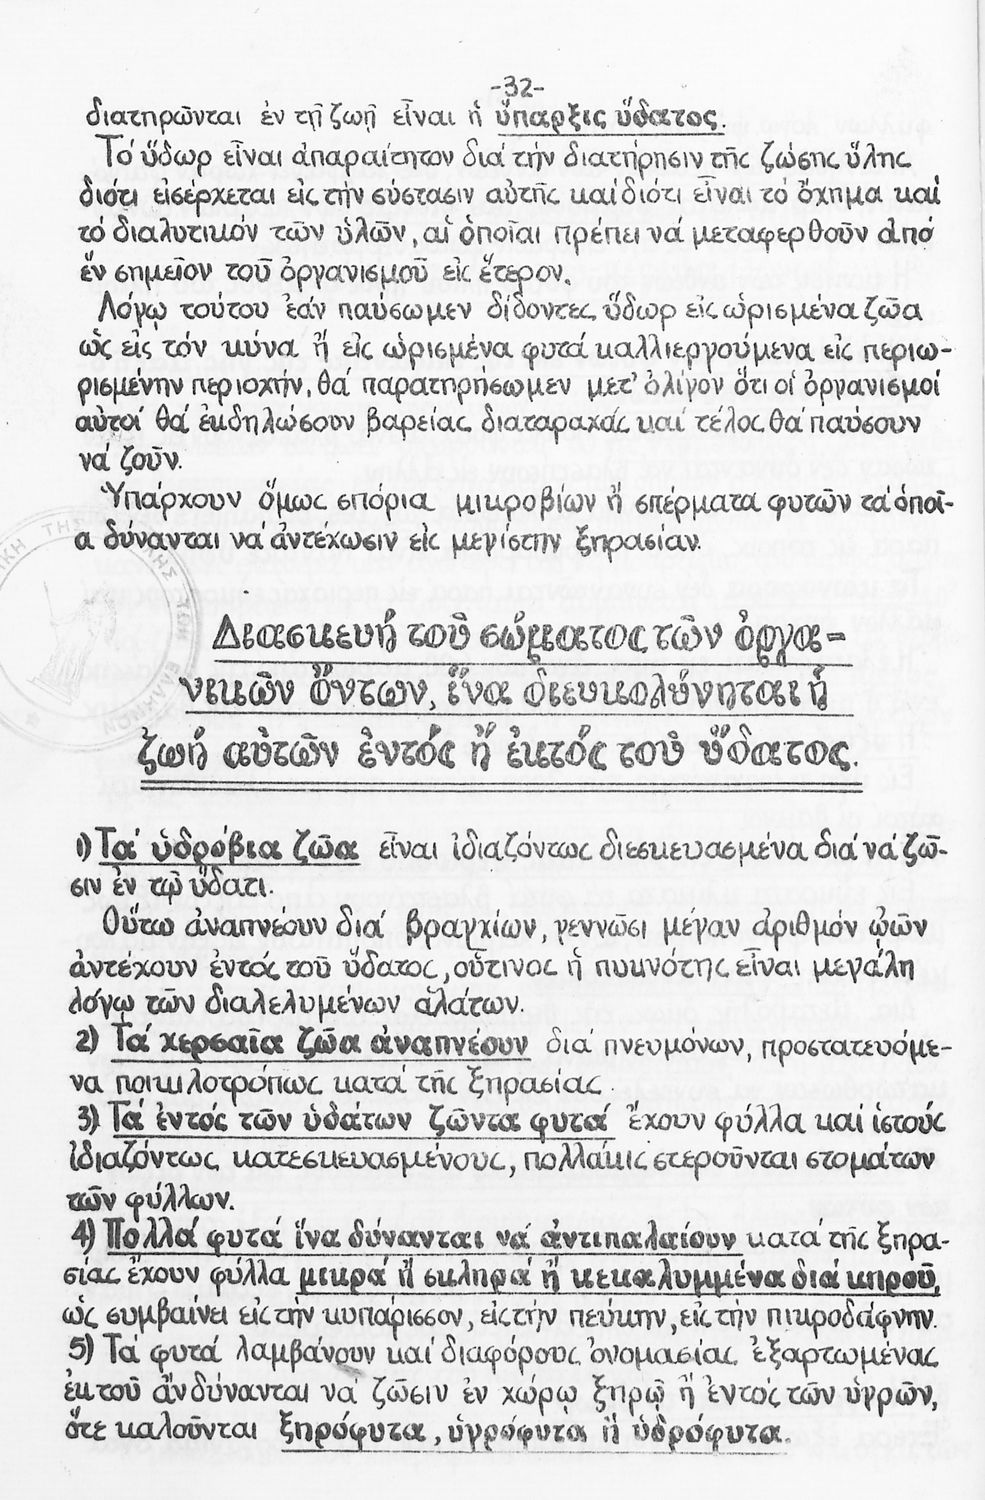 -32-
διατηρῶνται ἐν τῇ ζωῇ εἶναι ἡ ὕπαρξις ὕδατος.
Τό ὕδωρ εἶναι ἀπαραίτητον διά τήν διατήρησιν τῆς ζώσης ὕλης
διότι εἰσέρχεται εἰς τήν σύστασιν αὐτῆς καί διότι εἶναι τό ὄχημα καί
τό διαλυτικόν τῶν ὑλῶν, αἱ ὁποῖαι πρέπει νά μεταφερθοῦν ἀπό
ἕν σημεῖον τοῦ ὀργανισμοῦ εἰς ἕτερον.
Λόγῳ τούτου ἐάν παύσωμεν δίδοντες ὕδωρ εἰς ὡρισμένα ζῶα
ὡς εἰς τόν κύνα ἤ εἰς ὡρισμένα φυτά καλλιεργούμενα εἰς περιω-
ρισμένην περιοχήν, θά παρατηρήσωμεν μετ' ὀλίγον ὅτι οἱ ὀργανισμοί
αὐτοί θά ἐκδηλώσουν βαρείας διαταραχάς καί τέλος θά παύσουν
νά ζοῦν.
Ὑπάρχουν ὅμως σπόρια μικροβίων ἤ σπέρματα φυτῶν τά ὁποῖ-
α δύνανται νά ἀντέχωσιν εἰς μεγίστην ξηρασίαν.
Διασκευή τοῦ σώματος τῶν ὀργα-
νικῶν ὄντων, ἵνα διευκολύνηται ἡ
ζωή αὐτῶν ἐντός ἤ ἐκτός τοῦ ὕδατος.
1) Τά ὑδρόβια ζῶα εἶναι ἰδιαζόντως διεσκευασμένα διά νά ζῶ-
σιν ἐν τῷ ὕδατι.
Οὕτω ἀναπνέουν διά βραγχίων, γεννῶσι μέγαν ἀριθμόν ᾠῶν
ἀντέχουν ἐντός τοῦ ὕδατος, οὕτινος ἡ πυκνότης εἶναι μεγάλη
λόγῳ τῶν διαλελυμένων ἁλάτων.
2) Τά χερσαῖα ζῶα ἀναπνέουν διά πνευμόνων, προστατευόμε-
να ποικιλοτρόπως κατά τῆς ξηρασίας.
3) Τά ἐντός τῶν ὑδάτων ζῶντα φυτά ἔχουν φύλλα καί ἱστούς
ἰδιαζόντως κατεσκευασμένους, πολλάκις στεροῦνται στομάτων
τῶν φύλλων.
4) Πολλά φυτά ἵνα δύνανται νά ἀντιπαλαίουν κατά τῆς ξηρα-
σίας ἔχουν φύλλα μικρά ἤ σκληρά ἤ κεκαλυμμένα διά κηροῦ,
ὡς συμβαίνει εἰς τήν κυπάρισσον, εἰς τήν πεύκην, εἰς τήν πικροδάφνην.
5) Τά φυτά λαμβάνουν καί διαφόρους ὀνομασίας ἐξαρτωμένας
ἐκ τοῦ ἄν δύνανται νά ζῶσιν ἐν χώρῳ ξηρῷ ἤ ἐντός τῶν ὑγρῶν,
ὅτε καλοῦνται ξηρόφυτα, ὑγρόφυτα ἤ ὑδρόφυτα.